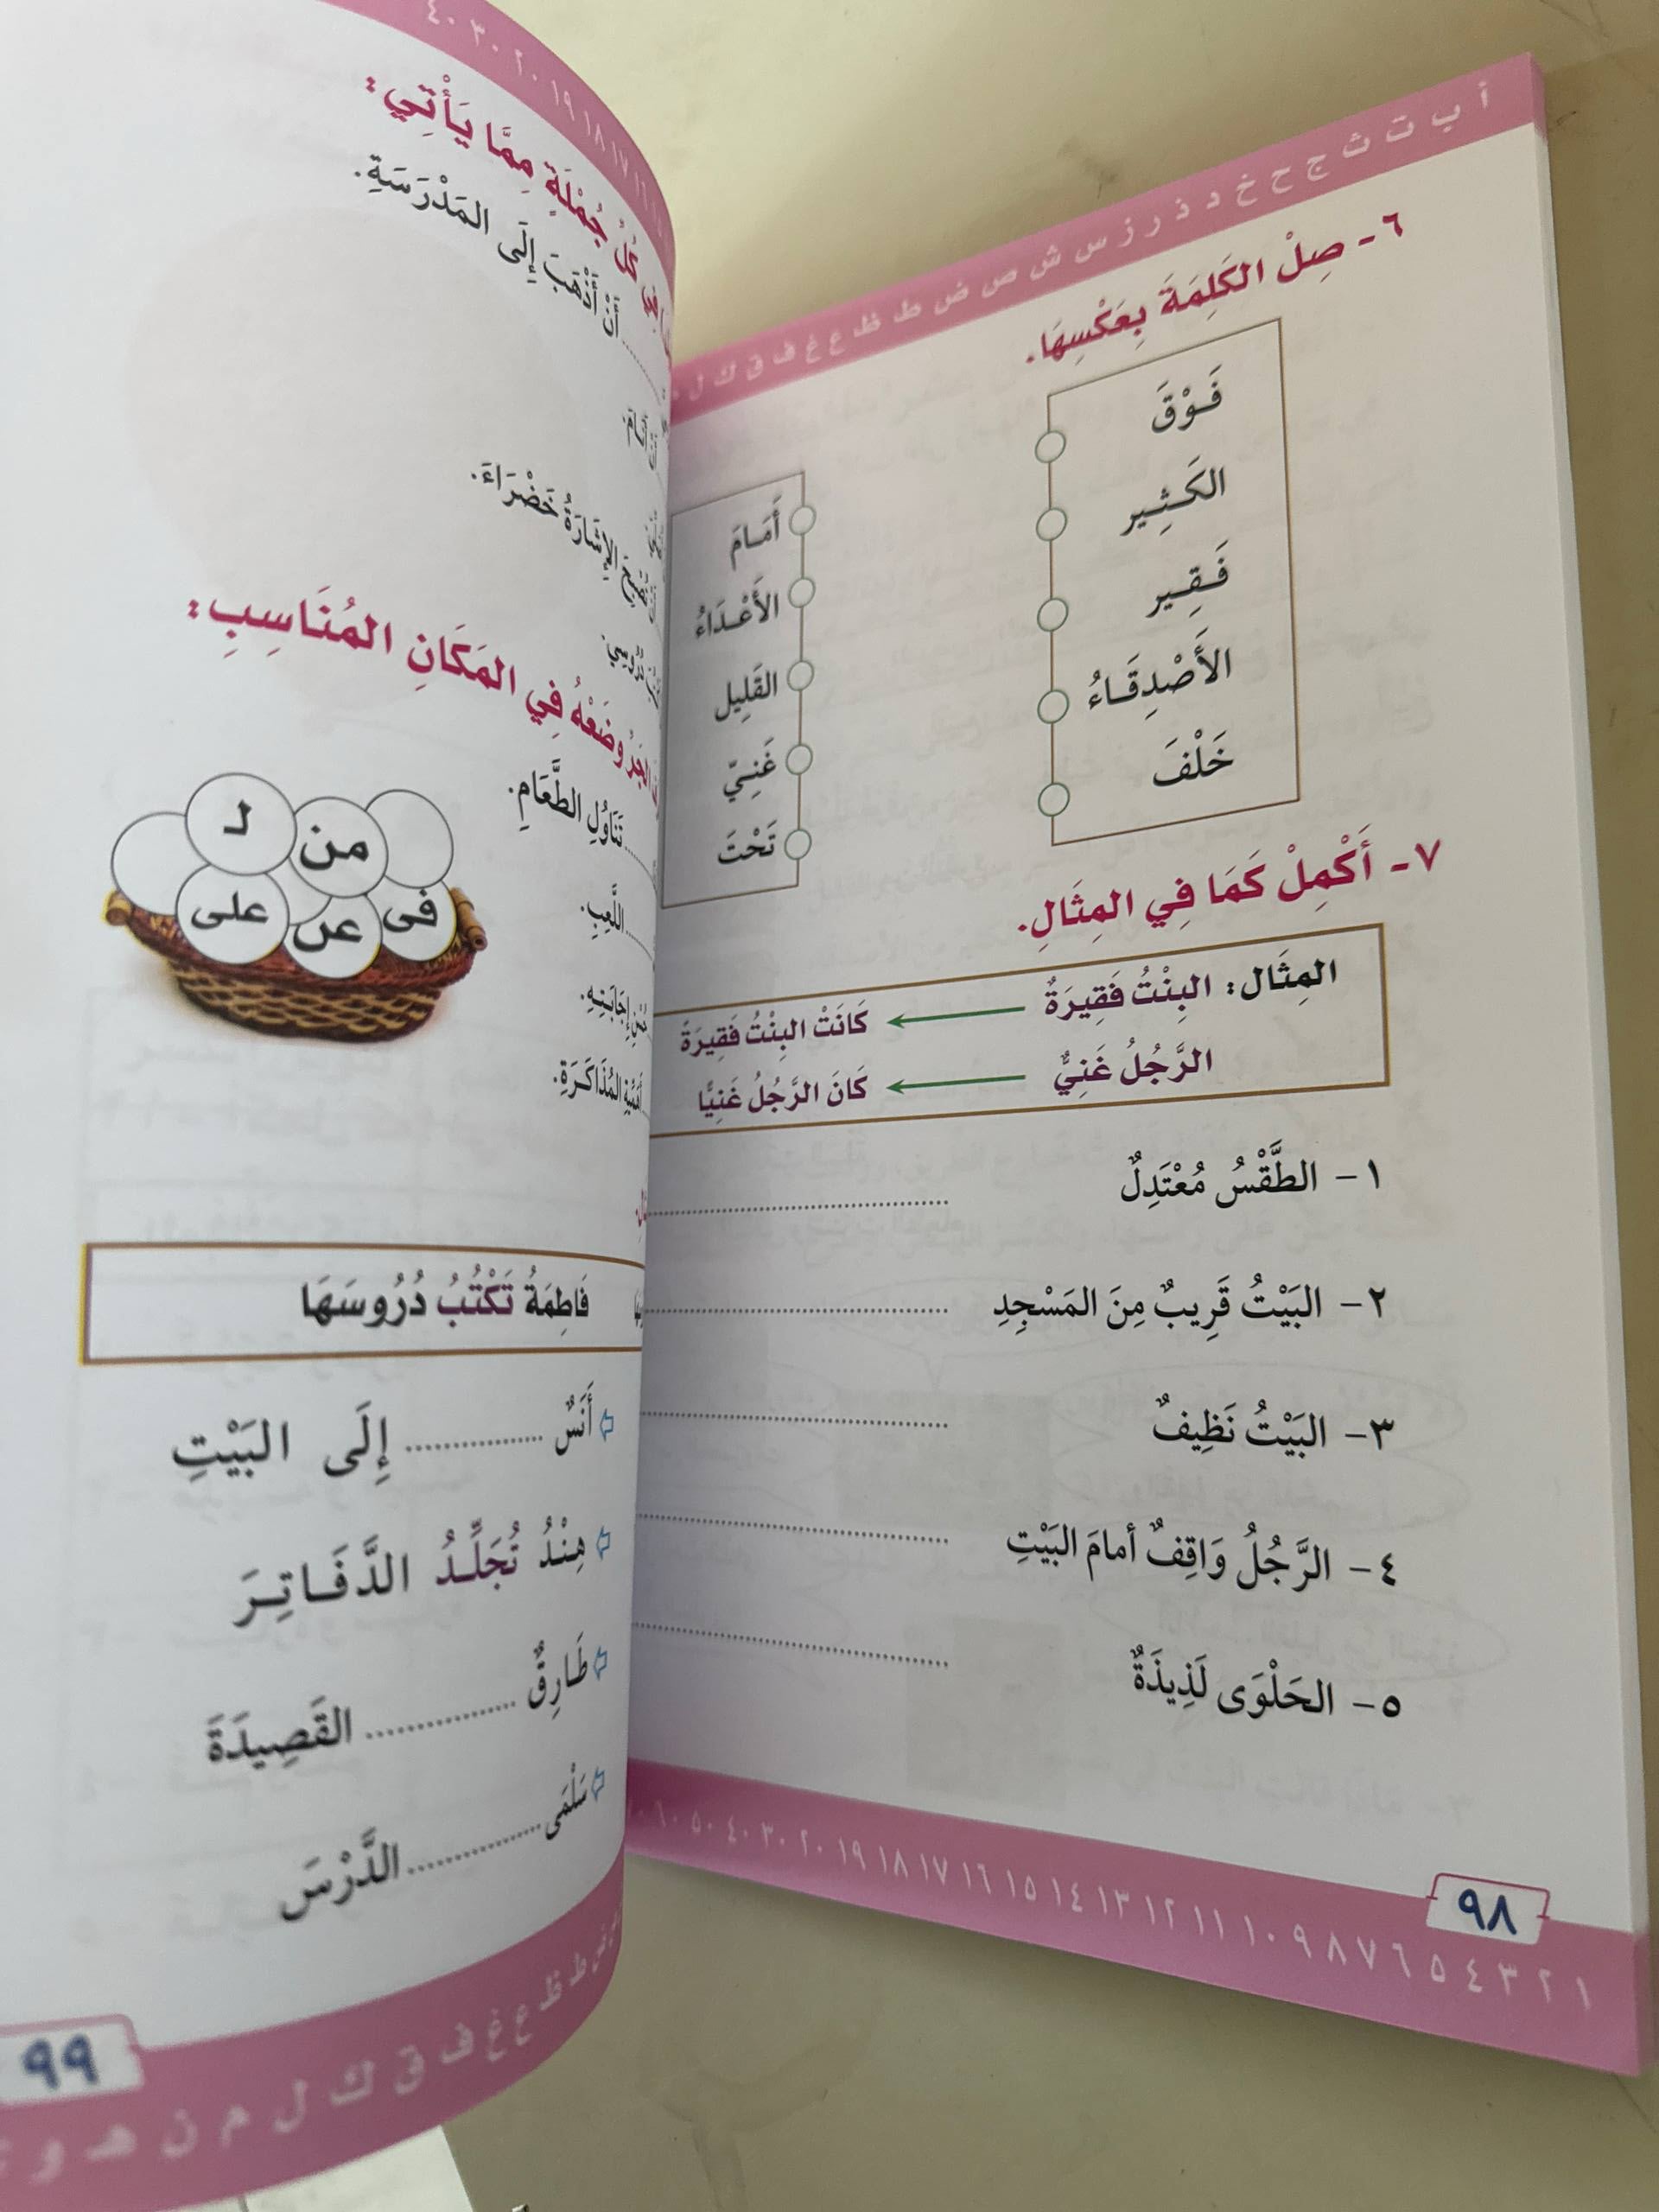 أ ب ت ث ج ح خ د ذ ر ز س ش ص ض ط ظ ع غ ف ق ك ل
٦- صِلْ الكَلِمَةَ بِعَكْسِهَا.
فَوْقَ
الكَثِير
فَقِير
الأَصْدِقَاءُ
خَلْفَ
أَمَامَ
الأَعْدَاءُ
القَلِيل
غَنِيّ
تَحْتَ
٧- أَكْمِلْ كَمَا فِي المِثَالِ.
المِثَال: البِنْتُ فَقِيرَةٌ كَانَتْ البِنْتُ فَقِيرَةً
الرَّجُلُ غَنِيٌّ كَانَ الرَّجُلُ غَنِيًّا
١- الطَّقْسُ مُعْتَدِلٌ
٢- البَيْتُ قَرِيبٌ مِنَ المَسْجِدِ
٣- البَيْتُ نَظِيفٌ
٤- الرَّجُلُ وَاقِفٌ أمامَ البَيْتِ
٥- الحَلْوَى لَذِيذَةٌ
٩٨
١ ٢ ٣ ٤ ٥ ٦ ٧ ٨ ٩ ١٠ ١١ ١٢ ١٣ ١٤ ١٥ ١٦ ١٧ ١٨ ١٩ ٢٠ ٣٠ ٤٠ ٥٠ ٦٠
١٧ ١٨ ١٩ ٢٠ ٣٠ ٤٠
فِي كُلِّ جُمْلَةٍ مِمَّا يَأْتِي:
أَنْ أَذْهَبَ إِلَى المَدْرَسَةِ.
أَنَامَ.
الإِشَارَةُ خَضْرَاءَ.
وضَعْهُ فِي المَكَانِ المُنَاسِبِ:
تَنَاوُلِ الطَّعَامِ.
اللَّعِبِ.
إِجَابَتِهِ.
المُذَاكَرَةِ.
لـ
من
على
عن
فى
فَاطِمَةُ تَكْتُبُ دُرُوسَهَا
أَنَسٌ إِلَى البَيْتِ
هِنْدُ تُجَلِّدُ الدَّفَاتِرَ
طَارِقٌ القَصِيدَةَ
سَلْمَى الدَّرْسَ
٩٩
ط ظ ع غ ف ق ك ل م ن هـ و